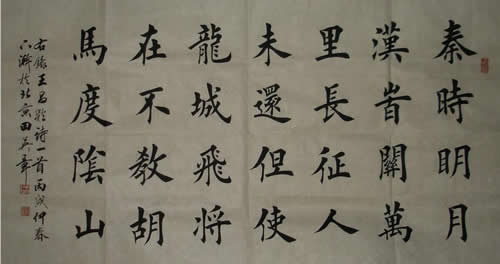 秦時明月
漢旹關萬
里長征人
未還但使
龍城飛将
在不教胡
馬度陰山
右錄王昌齡詩一首丙戌仲春
下澣於北京田英章